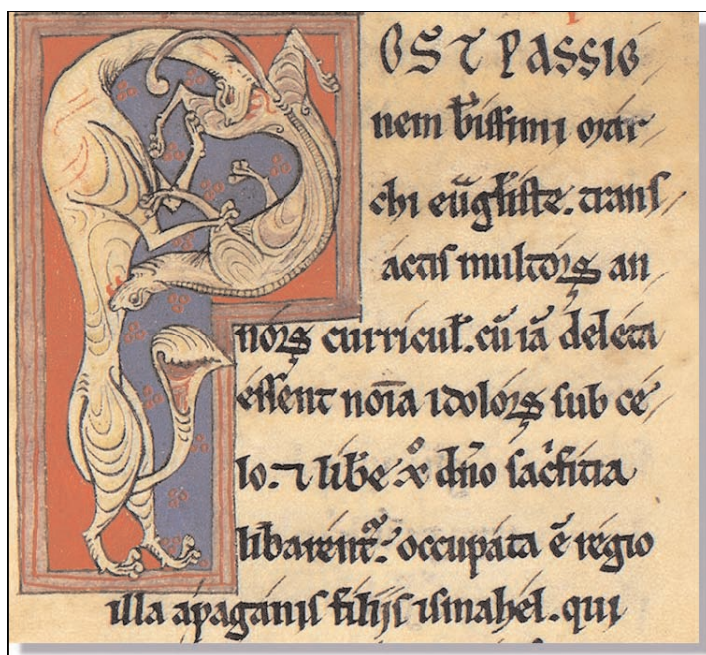 OST PASSIO
nem b̅issimi mar
chi eu̅gliste. trans
actis multoꝝ an
noꝝ curricul̕. cu̅ ia̅ deleta
essent no̅ia idoloꝝ sub ce
lo. ⁊ lib̅e dn̅o sac̅ficia
libarent᷑. occupata e̅ regio
illa apaganis filijs ismahel. qui